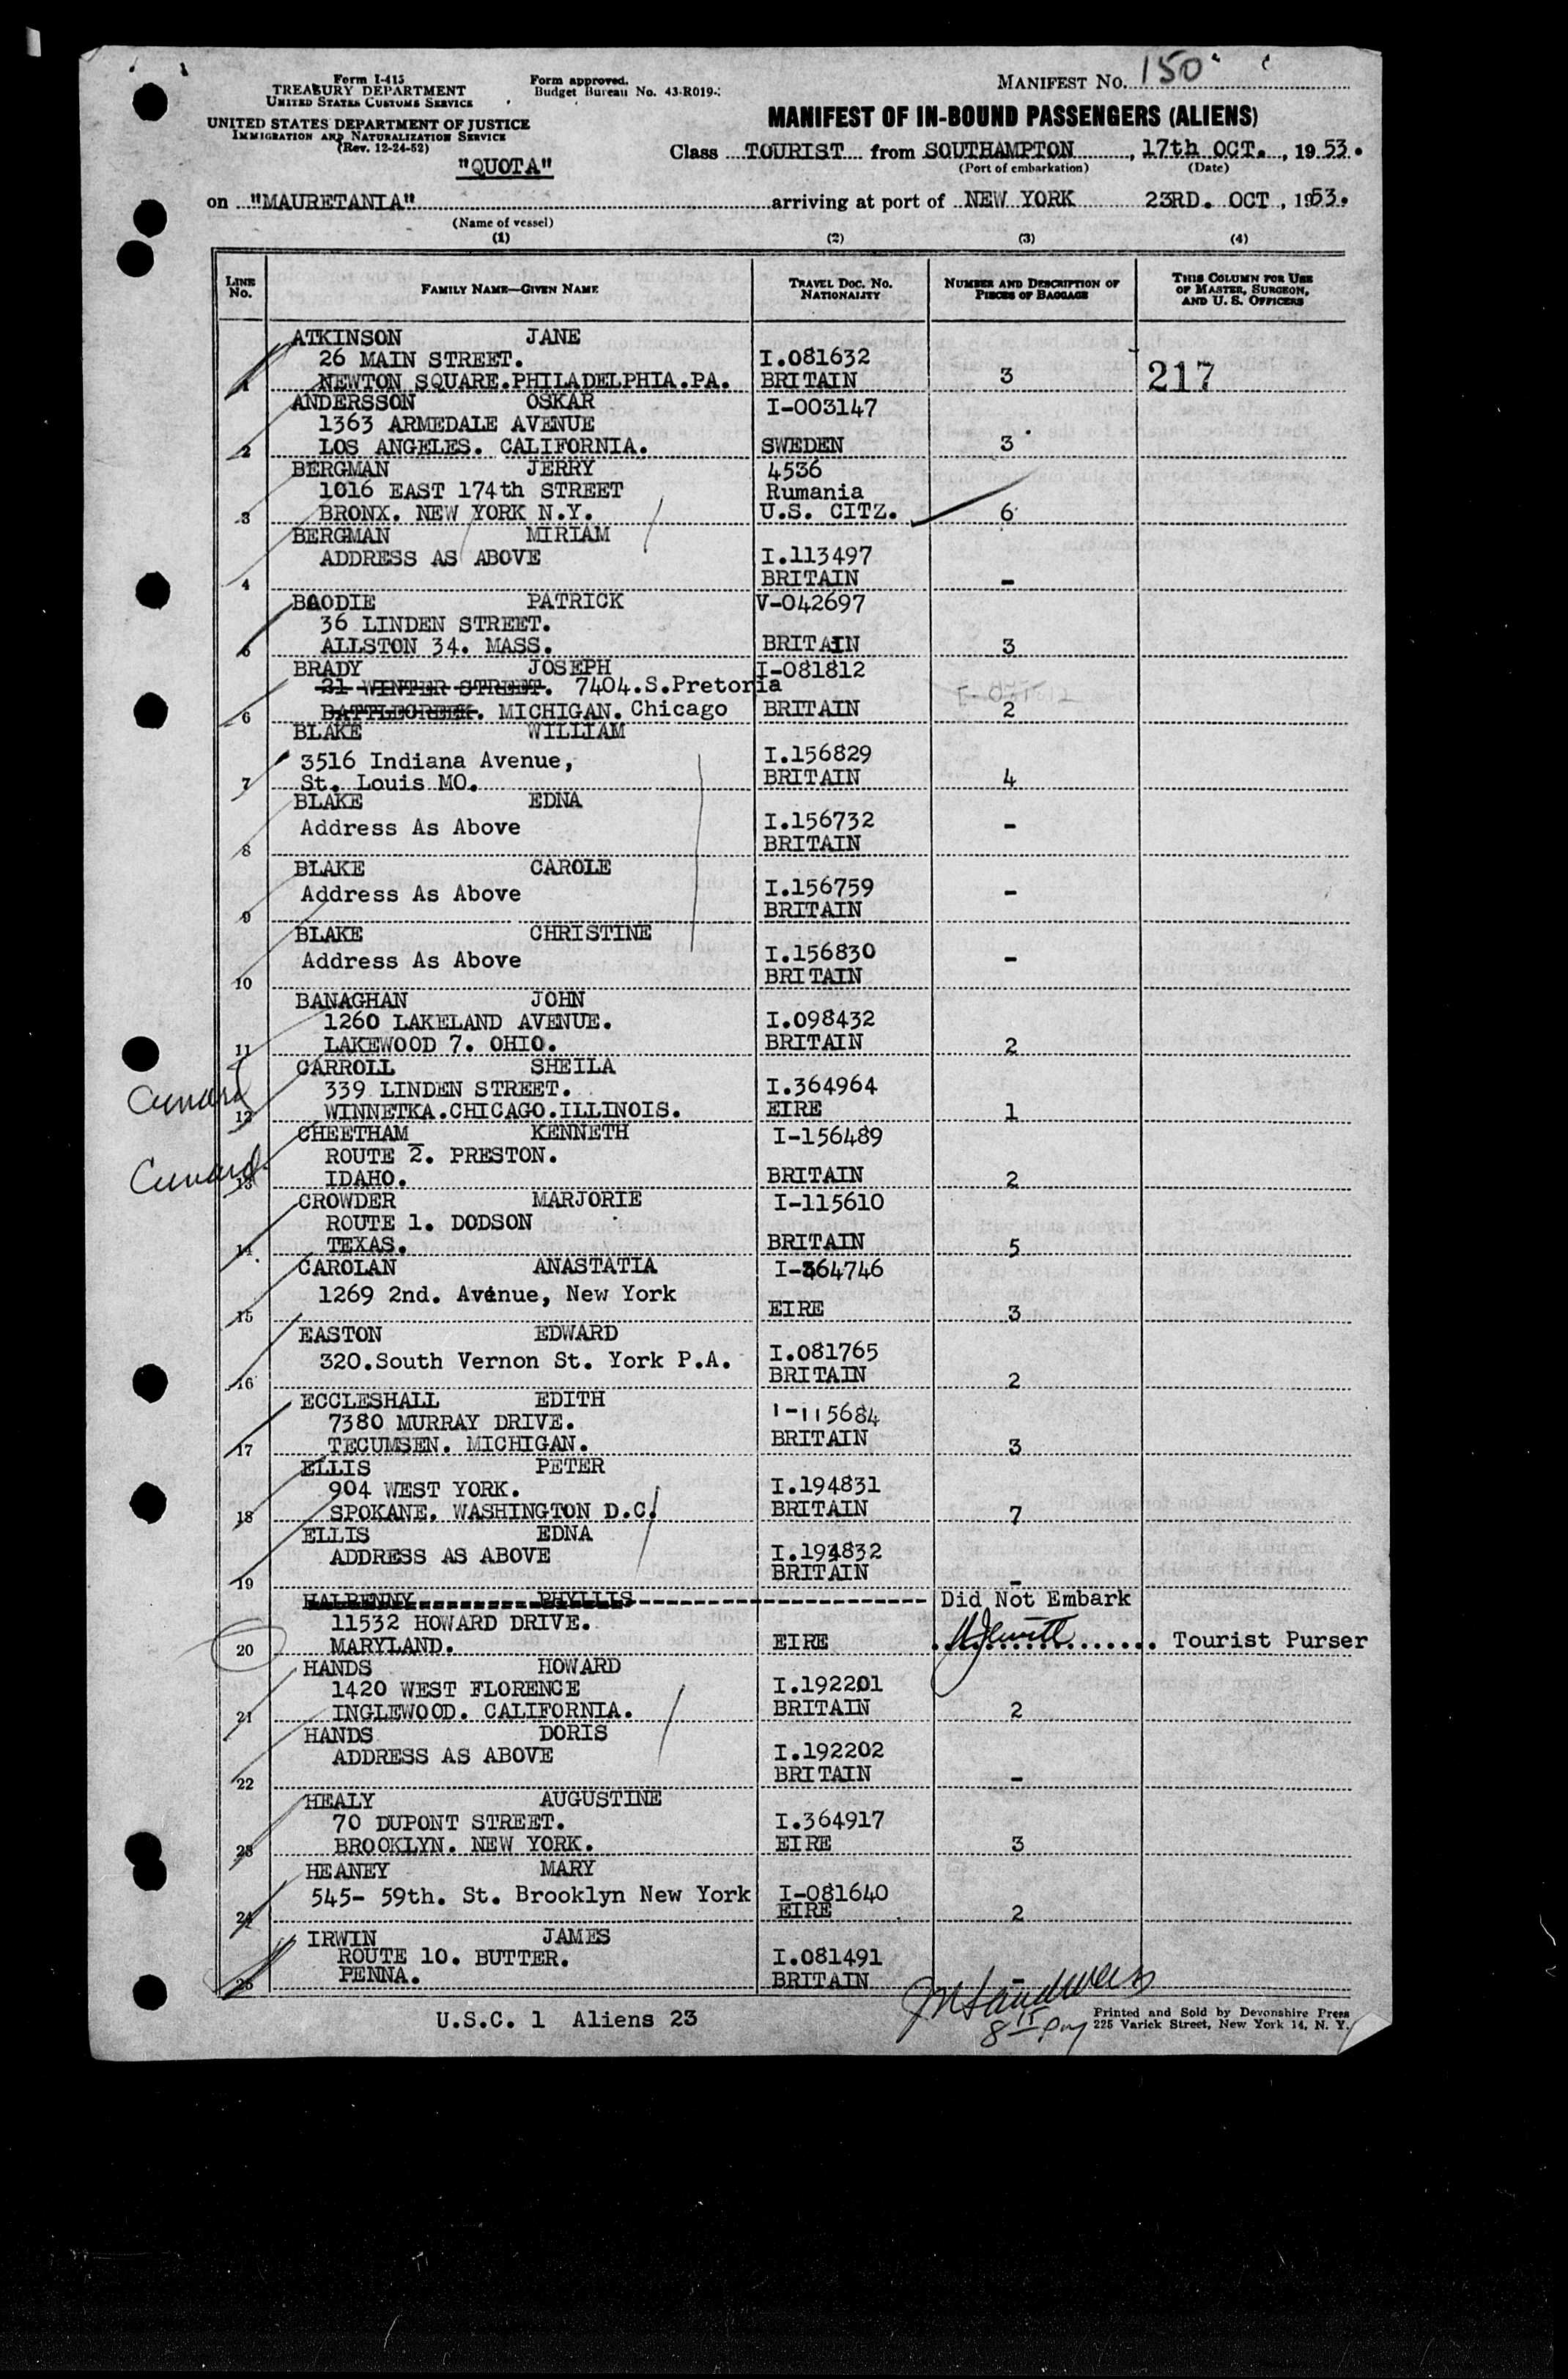 Form I-415
TREASURY DEPARTMENT
UNITED STATES CUSTOMS SERVICE
UNITED STATES DEPARTMENT OF JUSTICE
IMMIGRATION AND NATURALIZATION SERVICE
(Rev. 12-24-52)
Form approved.
Budget Bureau No. 43-R019-
MANIFEST No. 150
MANIFEST OF IN-BOUND PASSENGERS (ALIENS)
"QUOTA"
Class TOURIST from SOUTHAMPTON, 17th OCT., 1953.
(Port of embarkation) (Date)
on "MAURETANIA" arriving at port of NEW YORK 23RD. OCT, 1953.
(Name of vessel)
(1) (2) (3) (4)
LINE No. FAMILY NAME—GIVEN NAME TRAVEL DOC. No. NATIONALITY NUMBER AND DESCRIPTION OF PIECES OF BAGGAGE THIS COLUMN FOR USE OF MASTER, SURGEON, AND U. S. OFFICERS
ATKINSON JANE
26 MAIN STREET. I.081632
1 NEWTON SQUARE.PHILADELPHIA.PA. BRITAIN 3 217
ANDERSSON OSKAR I-003147
1363 ARMEDALE AVENUE
2 LOS ANGELES. CALIFORNIA. SWEDEN 3
BERGMAN JERRY 4536
1016 EAST 174th STREET Rumania
3 BRONX. NEW YORK N.Y. U.S. CITZ. 6
BERGMAN MIRIAM
ADDRESS AS ABOVE I.113497
4 BRITAIN -
BOODIE PATRICK V-042697
36 LINDEN STREET.
5 ALLSTON 34. MASS. BRITAIN 3
BRADY JOSEPH I-081812
21 WINTER STREET. 7404.S.Pretoria
6 BATTLECREEK. MICHIGAN. Chicago BRITAIN 2
BLAKE WILLIAM
3516 Indiana Avenue, I.156829
7 St. Louis MO. BRITAIN 4
BLAKE EDNA
Address As Above I.156732
8 BRITAIN -
BLAKE CAROLE
Address As Above I.156759
9 BRITAIN -
BLAKE CHRISTINE
Address As Above I.156830
10 BRITAIN -
BANAGHAN JOHN
1260 LAKELAND AVENUE. I.098432
11 LAKEWOOD 7. OHIO. BRITAIN 2
CARROLL SHEILA
Cunard 339 LINDEN STREET. I.364964
12 WINNETKA.CHICAGO.ILLINOIS. EIRE 1
CHEETHAM KENNETH I-156489
ROUTE 2. PRESTON.
Cunard 13 IDAHO. BRITAIN 2
CROWDER MARJORIE I-115610
ROUTE 1. DODSON
14 TEXAS. BRITAIN 5
CAROLAN ANASTATIA I-364746
1269 2nd. Avenue, New York
15 EIRE 3
EASTON EDWARD
320.South Vernon St. York P.A. I.081765
16 BRITAIN 2
ECCLESHALL EDITH
7380 MURRAY DRIVE. I-115684
17 TECUMSEN. MICHIGAN. BRITAIN 3
ELLIS PETER
904 WEST YORK. I.194831
18 SPOKANE. WASHINGTON D.C. BRITAIN 7
ELLIS EDNA
ADDRESS AS ABOVE I.194832
19 BRITAIN -
HALPENNY PHYLLIS Did Not Embark
11532 HOWARD DRIVE.
20 MARYLAND. EIRE Tourist Purser
HANDS HOWARD
1420 WEST FLORENCE I.192201
21 INGLEWOOD. CALIFORNIA. BRITAIN 2
HANDS DORIS
ADDRESS AS ABOVE I.192202
22 BRITAIN -
HEALY AUGUSTINE
70 DUPONT STREET. I.364917
23 BROOKLYN. NEW YORK. EIRE 3
HEANEY MARY
545- 59th. St. Brooklyn New York I-081640
24 EIRE 2
IRWIN JAMES
ROUTE 10. BUTTER. I.081491
25 PENNA. BRITAIN -
U.S.C. 1 Aliens 23
8 15 pm
Printed and Sold by Devonshire Press
225 Varick Street, New York 14, N. Y.